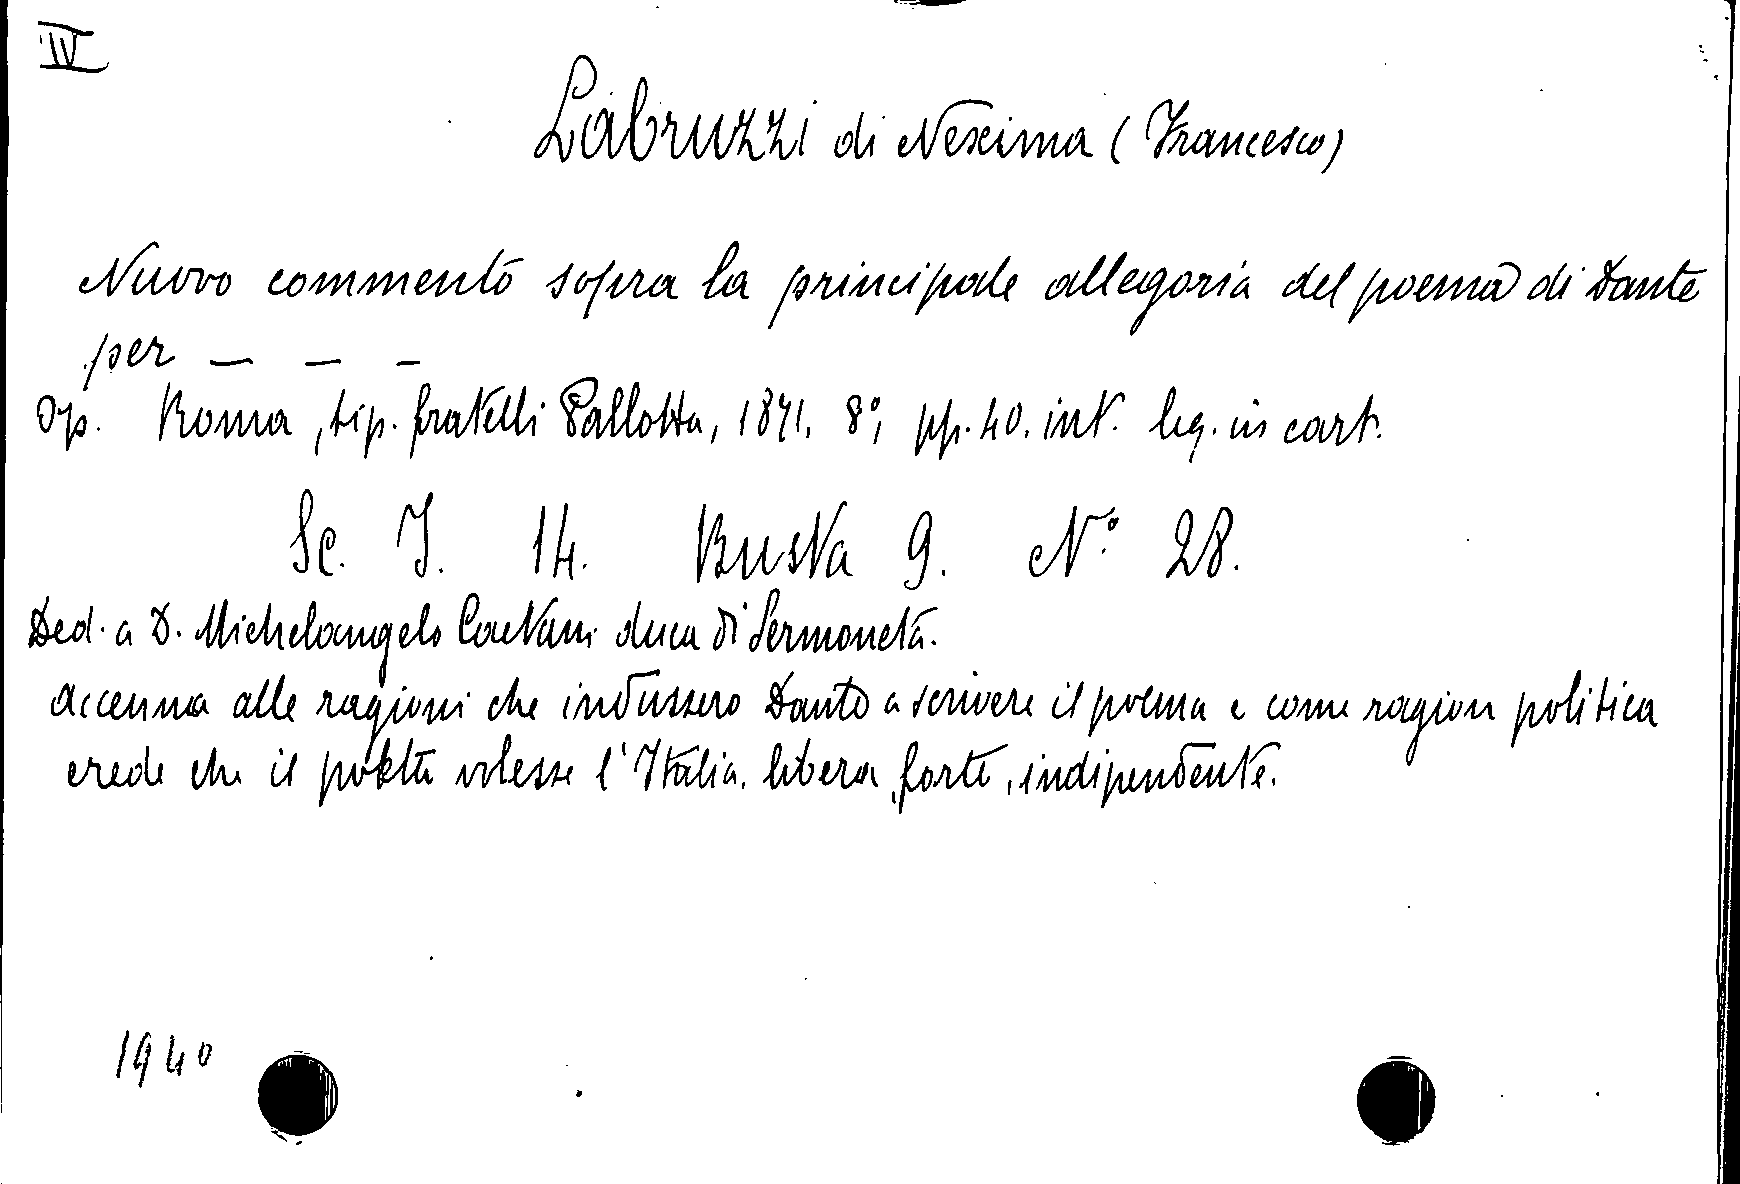 IV
Labruzzi di Nexima (Francesco)
Nuovo commento sopra la principale allegoria del poema di Dante
per _ _ _
Op. Roma, tip. fratelli Pallotta, 1871. 8°, pp. 40. int. leg. in cart.
Sc. I. 14. Busta 9. N° 28.
Ded. a D. Michelangelo Caetani duca di Sermoneta.
Accenna alle ragioni che indussero Dante a scrivere il poema e come ragion politica
crede che il poeta volesse l'Italia libera, forte, indipendente.
1940